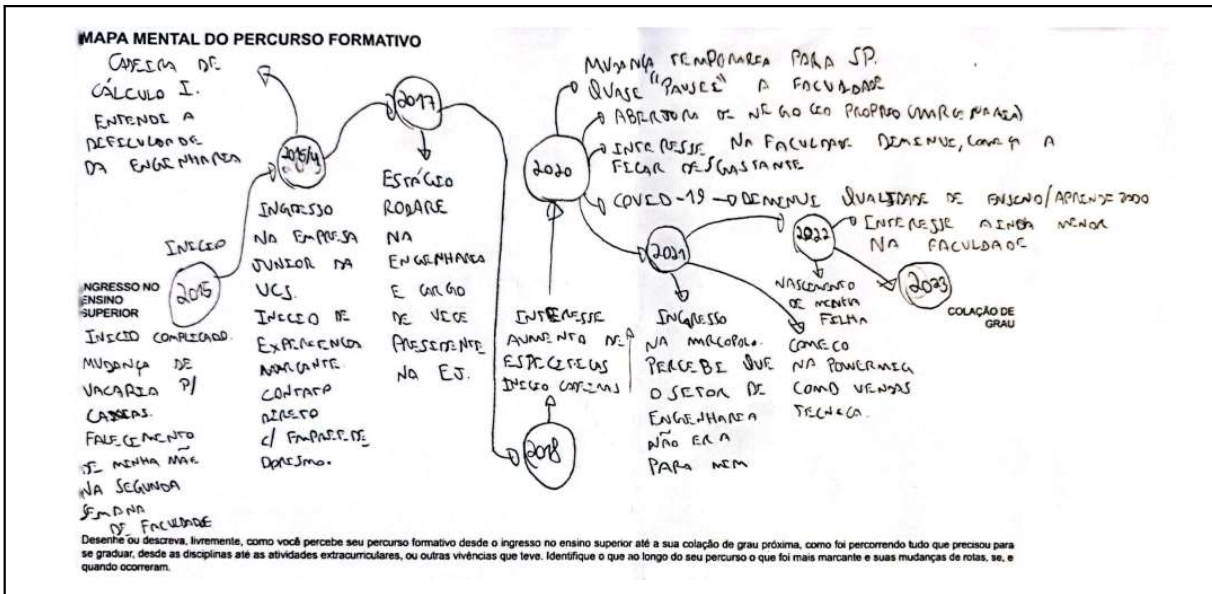 MAPA MENTAL DO PERCURSO FORMATIVO
CADEIRA DE
CÁLCULO I.
ENTENDE A
DIFICULDADE
DA ENGENHARIA
INÍCIO
2015
INGRESSO NO
ENSINO
SUPERIOR
INICIO COMPLICADO.
MUDANÇA DE
VACARIA P/
CAXIAS.
FALECIMENTO
DE MINHA MÃE
NA SEGUNDA
SEMANA
DE FACULDADE
2015/4
INGRESSO
NA EMPRESA
JUNIOR DA
UCS.
INICIO DE
EXPERIENCIA
MARCANTE.
CONTATO
DIRETO
C/ EMPREENDE
DORISMO.
2017
ESTÁGIO
RODARE
NA
ENGENHARIA
E CARGO
DE VICE
PRESIDENTE
NA EJ.
2018
INTERESSE
AUMENTO DE
ESPECIFICAS
INICIO CADEIRAS
2020
MUDANÇA TEMPORARIA PARA SP.
QUASE "PAUSEI" A FACULDADE
ABERTURA DE NEGOCIO PROPRIO (MARCENARIA)
INTERESSE NA FACULDADE DIMINUI, COMEÇA A
FICAR DESGASTANTE
COVID-19 → DIMINUI QUALIDADE DE ENSINO/APRENDIZADO
2021
INGRESSO
NA MARCOPOLO.
PERCEBI QUE
O SETOR DE
ENGENHARIA
NÃO ERA
PARA MIM
COMEÇO
NA POWERMIG
COMO VENDAS
TECNICA.
2022
INTERESSE AINDA MENOR
NA FACULDADE
NASCIMENTO
DE MINHA
FILHA
2023
COLAÇÃO DE
GRAU
Desenhe ou descreva, livremente, como você percebe seu percurso formativo desde o ingresso no ensino superior até a sua colação de grau próxima, como foi percorrendo tudo que precisou para
se graduar, desde as disciplinas até as atividades extracurriculares, ou outras vivências que teve. Identifique o que ao longo do seu percurso o que foi mais marcante e suas mudanças de rotas, se, e
quando ocorreram.